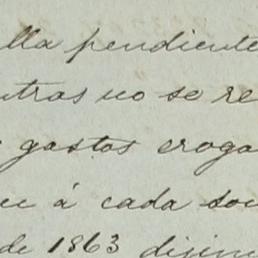 alla pendiente
ntras no se re
gastos eroga
ue á cada sou
de 1863